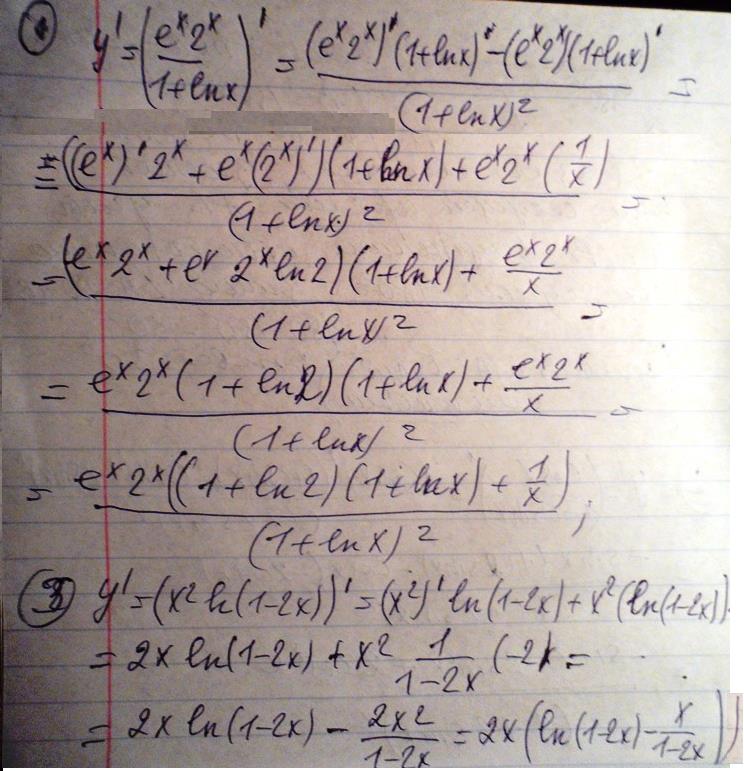 ① y' = (e^x 2^x / (1+lnx))' = ((e^x 2^x)'(1+lnx) - (e^x 2^x)(1+lnx)') / (1+lnx)^2 =
= (((e^x)' 2^x + e^x (2^x)')(1+lnx) + e^x 2^x (1/x)) / (1+lnx)^2 =
= ((e^x 2^x + e^x 2^x ln2)(1+lnx) + e^x 2^x / x) / (1+lnx)^2 =
= (e^x 2^x (1+ln2)(1+lnx) + e^x 2^x / x) / (1+lnx)^2 =
= e^x 2^x ((1+ln2)(1+lnx) + 1/x) / (1+lnx)^2 ;
y' = (x^2 ln(1-2x))' = (x^2)' ln(1-2x) + x^2 (ln(1-2x))
= 2x ln(1-2x) + x^2 1/(1-2x) (-2) =
= 2x ln(1-2x) - 2x^2/(1-2x) = 2x (ln(1-2x) - x/(1-2x))